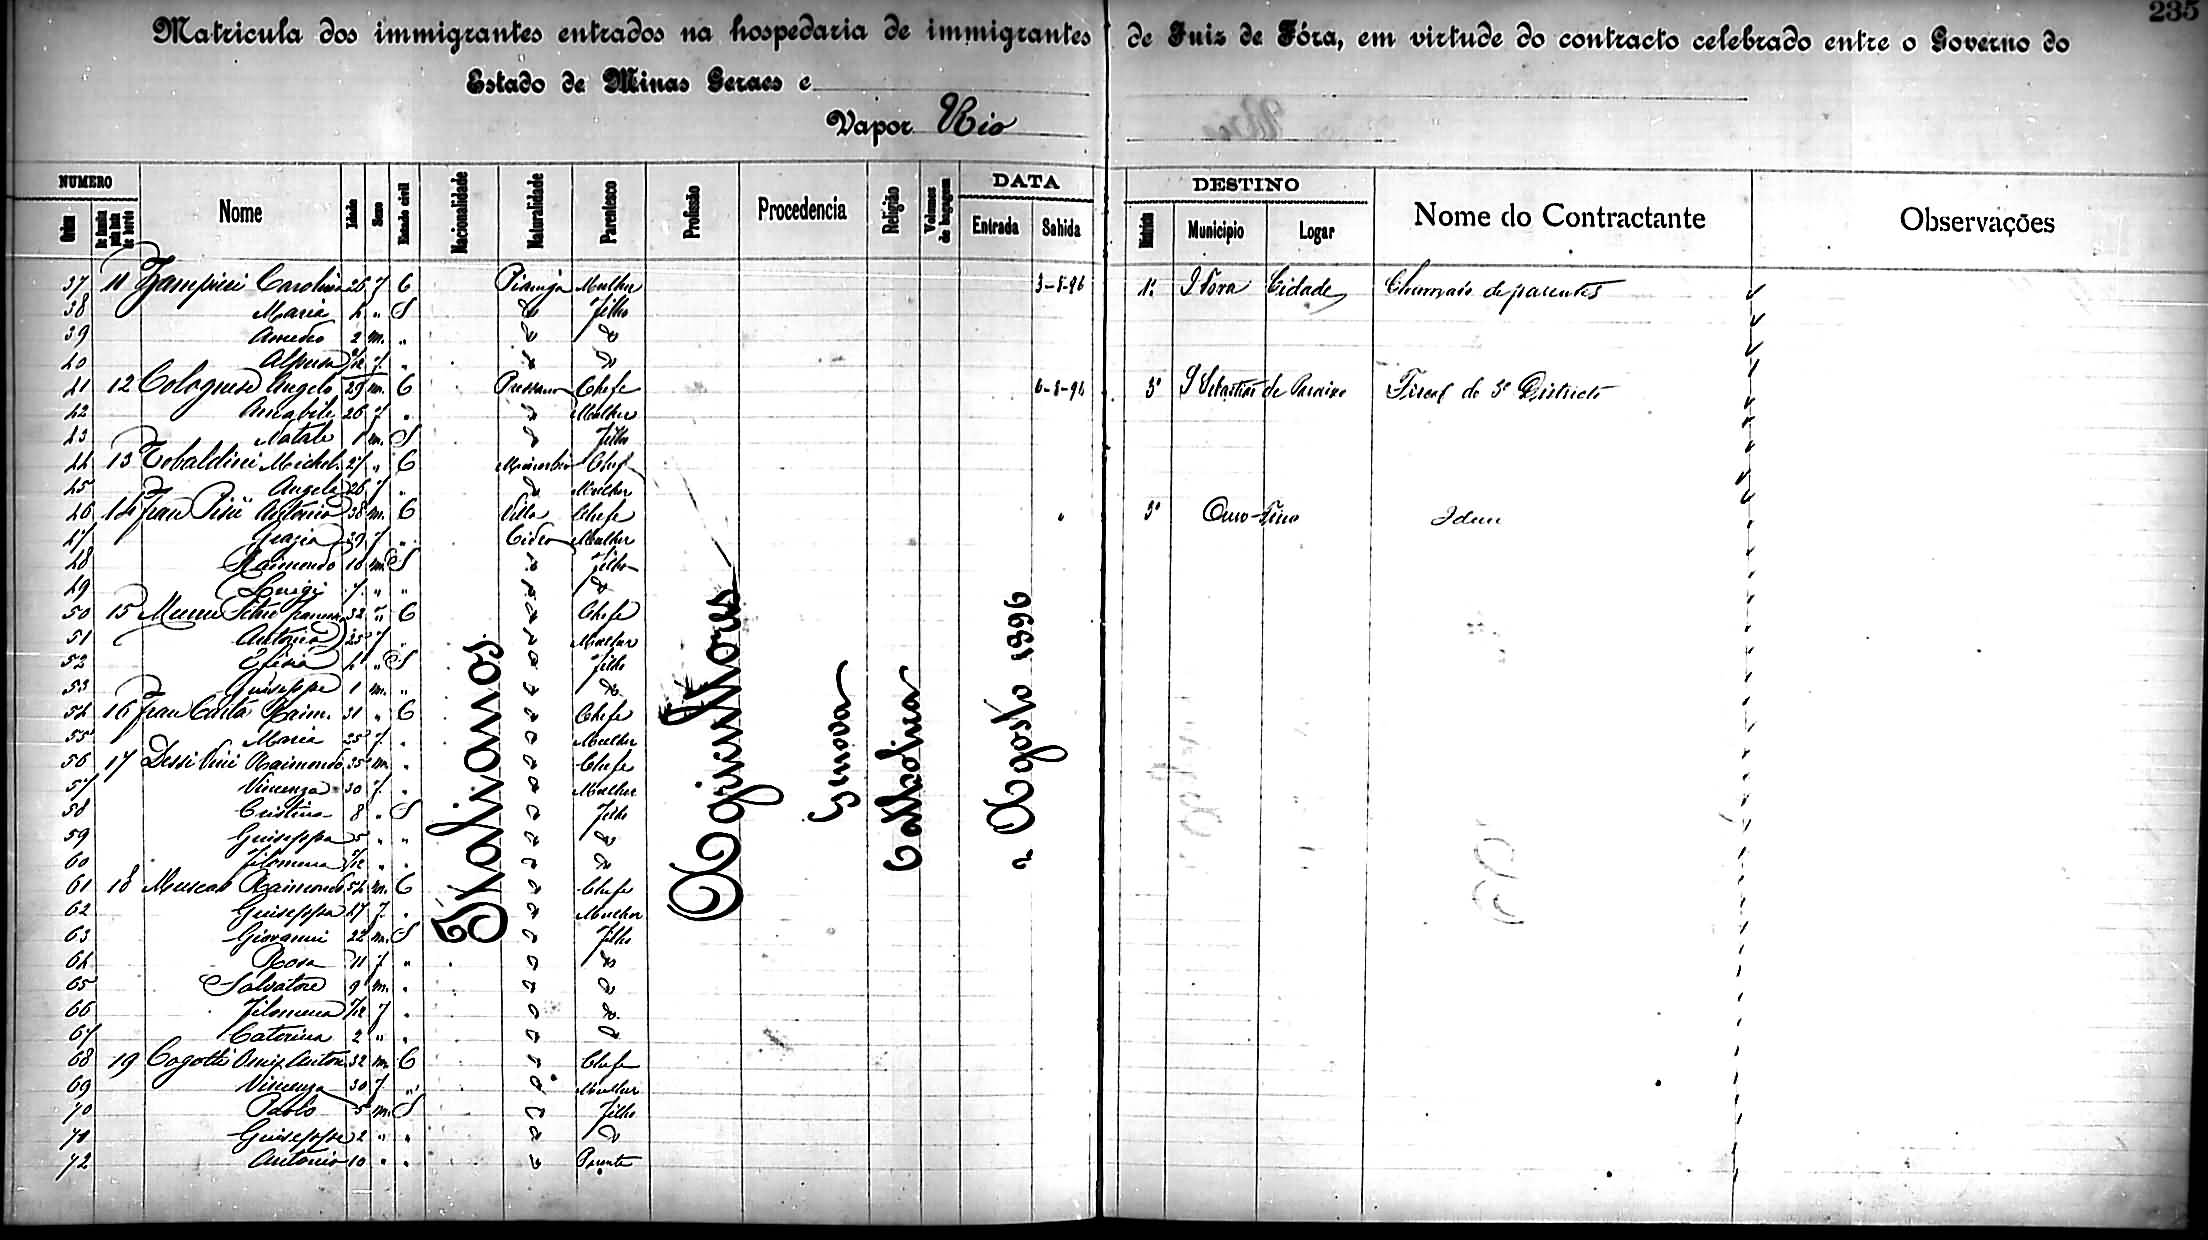 235
Matricula dos immigrantes entrados na hospedaria de immigrantes de Juiz de Fóra, em virtude do contracto celebrado entre o Governo do
Estado de Minas Geraes e
Vapor Rio
NUMERO DATA DESTINO
Ordem Nome Idade Sexo Estado civil Nacionalidade Naturalidade Parentesco Profissão Procedencia Religião Volumes de bagagem Entrada Sahida Districto Municipio Logar Nome do Contractante Observações
37 11 Zampieri Carolina 26 f C Pianiga Mulher 3-8-96 1º J Fora Cidade de parentes
38 Maria 4 " S do Filho
39 Amedeo 2 m. " do do
40 /12 f. " do do
41 12 Colognese Angelo 29 m. C Pressana Chefe 6-8-96 5º S Sebastião do Paraizo Fiscal do 5º Districto
42 Amabile 26 f " do Mulher
43 Natale 1 m. S do Filho
44 13 Tobaldini Michel. 27 " C Chefe
45 Angela 26 f " do Mulher
46 14 Frau Antonio 38 m. C Villa Chefe " 5º Ouro-Fino Idem
47 Grazia 39 f " Cidro Mulher
48 Raimondo 10 m. S do Filho
49 Luigi 7 " " do do
50 15 32 " C do Chefe
51 Antonia 25 f " do Mulher
52 Efisia 4 " S do Filho
53 Guiseppe 1 m. " do do
54 16 Frau Casta Raim. 31 " C do Chefe
55 Maria 25 f. " do Mulher
56 17 Dessi Raimondo 35 m. " do Chefe
57 Vincenza 30 f. " do Mulher
58 Cristina 8 " S do Filho
59 Guiseppa 5 " " do do
60 Filomena /12 " " do do
61 18 Muscas Raimondo 54 m. C do Chefe
62 Guiseppa 47 f. " do Mulher
63 Giovanni 22 m. S do Filho
64 Rosa 11 f " do do
65 Salvatore 9 m. " do do
66 Filomena /12 f " do do
67 Caterina 2 " " do do
68 19 Cogotti Anton. 32 m. C do Chefe
69 Vincenza 30 f. " do Mulher
70 Paolo 5 m. S do Filho
71 Guiseppe 2 " " do do
72 Antonio 10 " " do Parente
Italianos
Agricultores
Genova
Catholica
2 Agosto 1896